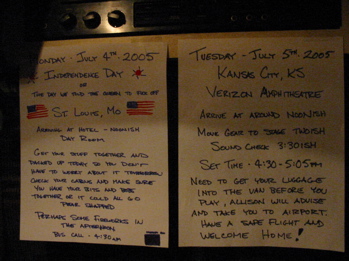 Monday - July 4th 2005
Independence Day
or
The day we find the queen to piss off
St. Louis, Mo
Arrive at hotel - Noonish
Day Room
Get your stuff together and
packed up today so you don't
have to worry about it tomorrow.
Check your cabins and make sure
you have your bits and bobs
together or it could all go
pear shaped
Perhaps some fireworks in
the afternoon
Bus call - 4:30am
Tuesday - July 5th 2005
Kansas City, KS
Verizon Amphitheatre
Arrive at around Noonish
Move Gear to stage Twoish
Sound Check 3:30ISH
Set Time - 4:30 - 5:05pm
Need to get your luggage
into the van before you
play, Allison will advise
and take you to airport.
Have a safe flight and
Welcome Home!